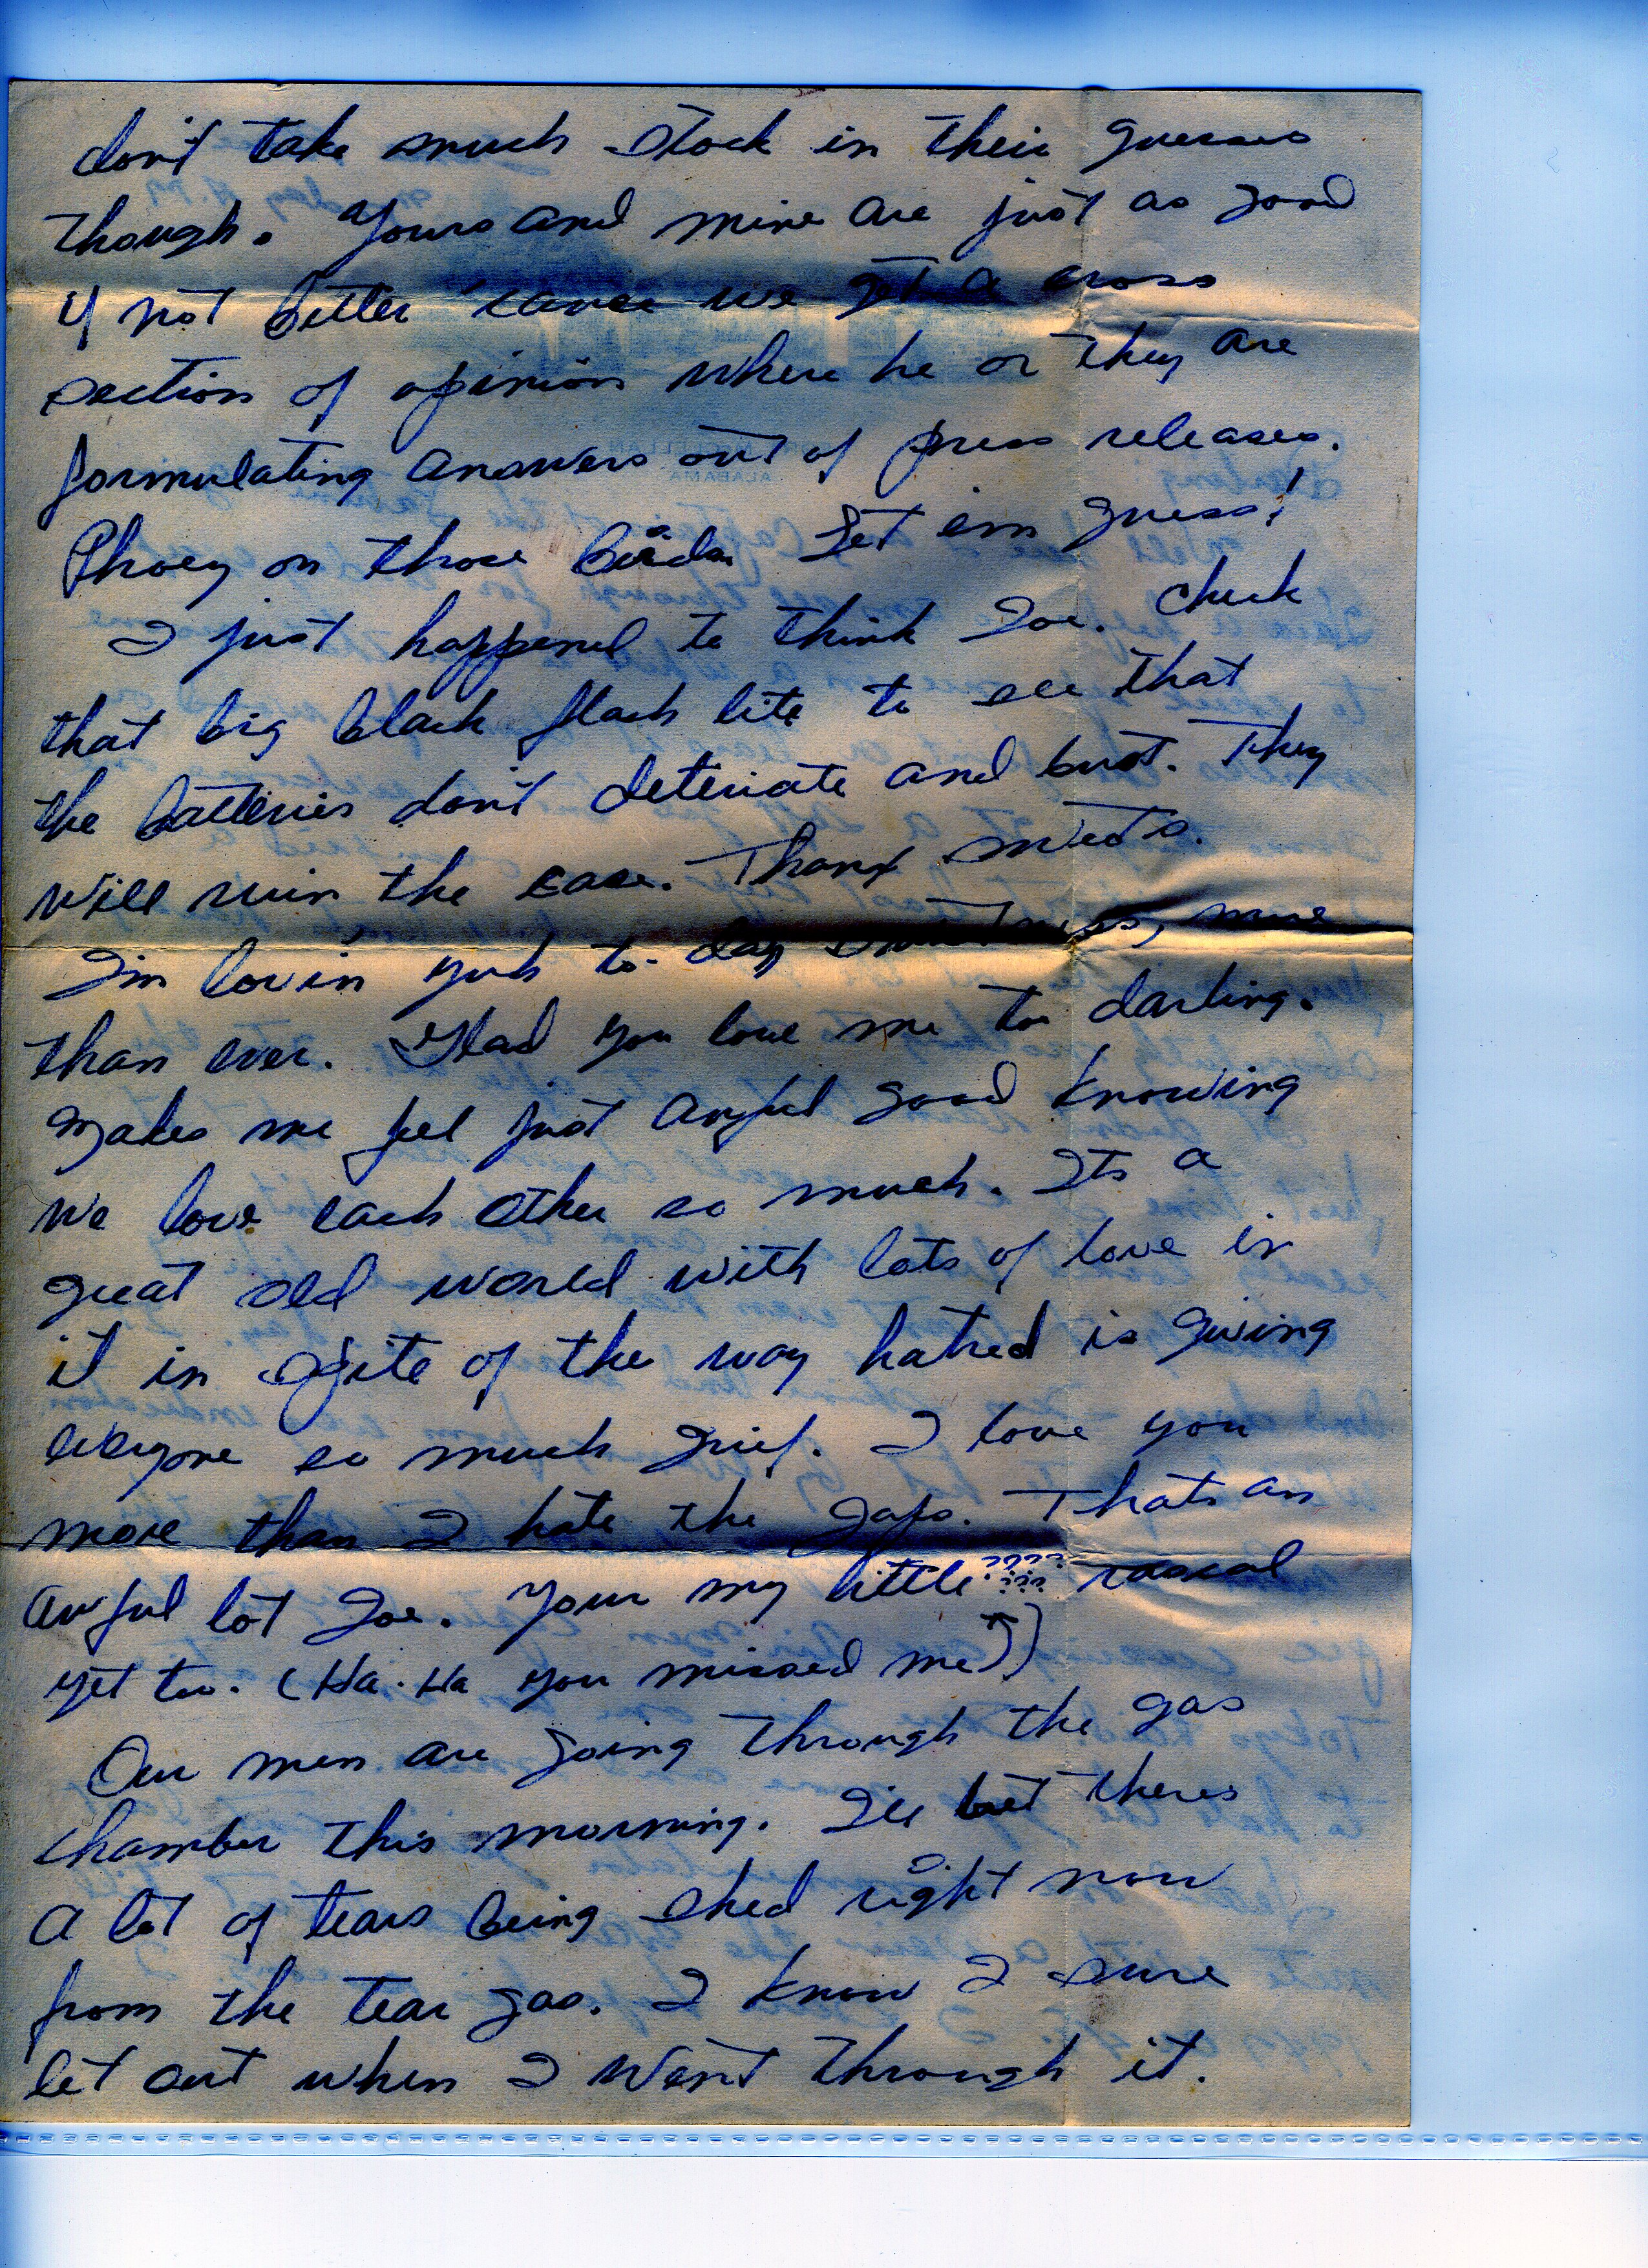 don't take much stock in their guesses
though. Yours and mine are just as good
if not better 'cause we get a cross
section of opinion where he or they are
formulating answers out of press releases.
Phoey on those birds. Let em guess!
I just happened to think Joe. Check
that big black flash lite to see that
the batteries don't deteriate and bust. They
will ruin the case. Thanx sweets.
I'm lovin' yuh to-day sweetness, more
than ever. Glad you love me too darling.
Makes me feel just awful good knowing
we love each other so much. Its a
great old world with lots of love in
it in spite of the way hatred is giving
everyone so much grief. I love you
more than I hate the Japs. Thats an
awful lot Joe. Your my little ???? ??? rascal
yet too. (Ha. Ha you missed me))
Our men are going through the gas
chamber this morning. I'll bet theres
a lot of tears being shed right now
from the tear gas. I know I sure
let out when I went through it.
ALABAMA